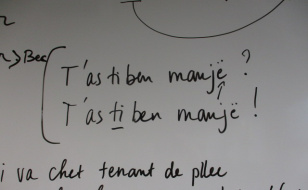 T'as ti ben manjë ?
T'as ti ben manjë !
i va chet tenant de pllec